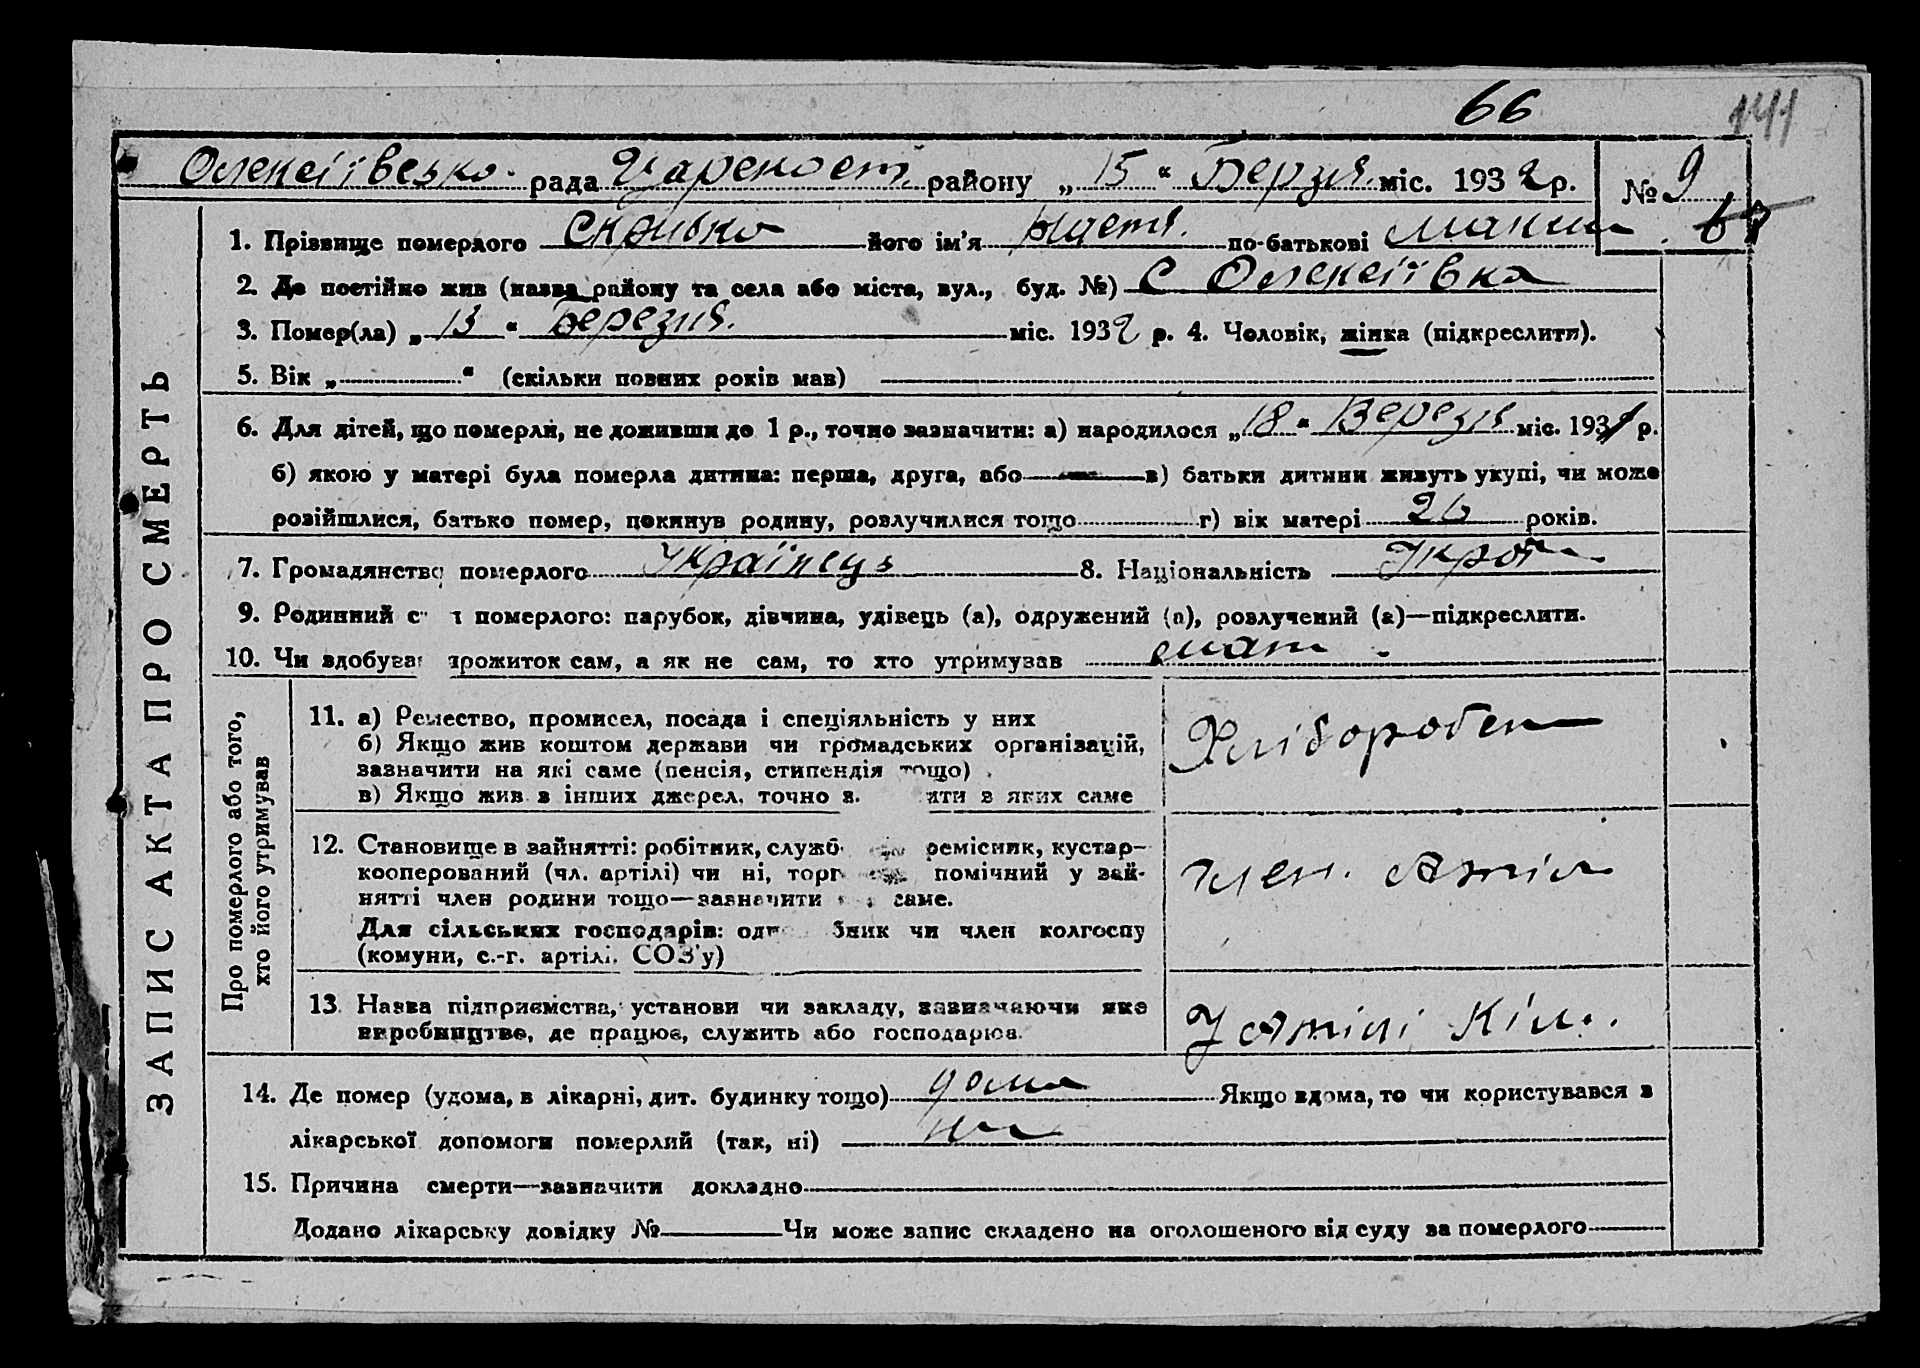 66 141
Олексіївсько. рада району „15“ Берзня. міс. 1932 р. № 9
1. Прізвище померлого його ім'я по-батькові
2. Де постійно жив (назва району та села або міста, вул., буд. №) С Олексіївка
3. Помер(ла) „13“ Березня. міс. 1932 р. 4. Чоловік, жінка (підкреслити).
5. Вік „ “ (скільки повних років мав)
6. Для дітей, що померли, не доживши до 1 р., точно зазначити: а) народилося „18“ Березня міс. 1931 р.
б) якою у матері була померла дитина: перша, друга, або в) батьки дитини живуть укупі, чи може
розійшлися, батько помер, покинув родину, розлучилися тощо г) вік матері 26 років.
7. Громадянство померлого Українець 8. Національність
9. Родинний померлого: парубок, дівчина, удівець (а), одружений (а), розлучений (а)—підкреслити.
10. Чи здобував прожиток сам, а як не сам, то хто утримував мати
ЗАПИС АКТА ПРО СМЕРТЬ
Про померлого або того,
хто його утримував
11. а) Ремество, промисел, посада і спеціяльність у них
б) Якщо жив коштом держави чи громадських організацій,
зазначити на які саме (пенсія, стипендія тощо)
в) Якщо жив з інших джерел, точно з. ити з яких саме
Хлібороben
12. Становище в зайнятті: робітник, служб ремісник, кустар-
кооперований (чл. артілі) чи ні, торг помічний у зай-
нятті член родини тощо—зазначити саме.
Для сільських господарів: одн бник чи член колгоспу
(комуни, с.-г. артілі, СОЗ'у)
член. Артіл
13. Назва підприємства, установи чи закладу, зазначаючи яке
виробництво, де працює, служить або господарює.
У Артілі Кім.
14. Де помер (удома, в лікарні, дит. будинку тощо) дома Якщо вдома, то чи користувався з
лікарської допомоги померлий (так, ні) ні
15. Причина смерти—зазначити докладно
Додано лікарську довідку № Чи може запис складено на оголошеного від суду за померлого